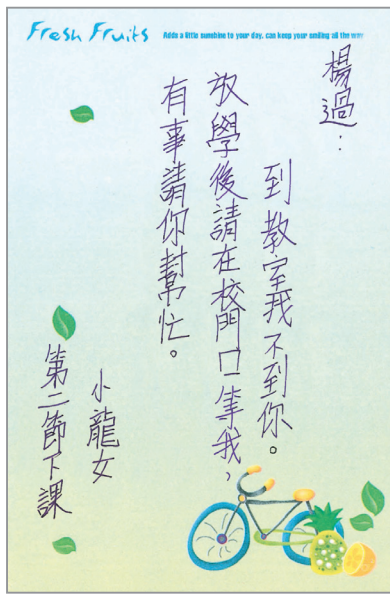 Fresh Fruits
Adds a little sunshine to your day, can keep your smiling all the way
楊過：
到教室找不到你。
放學後請在校門口等我，
有事請你幫忙。
小龍女
第二節下課